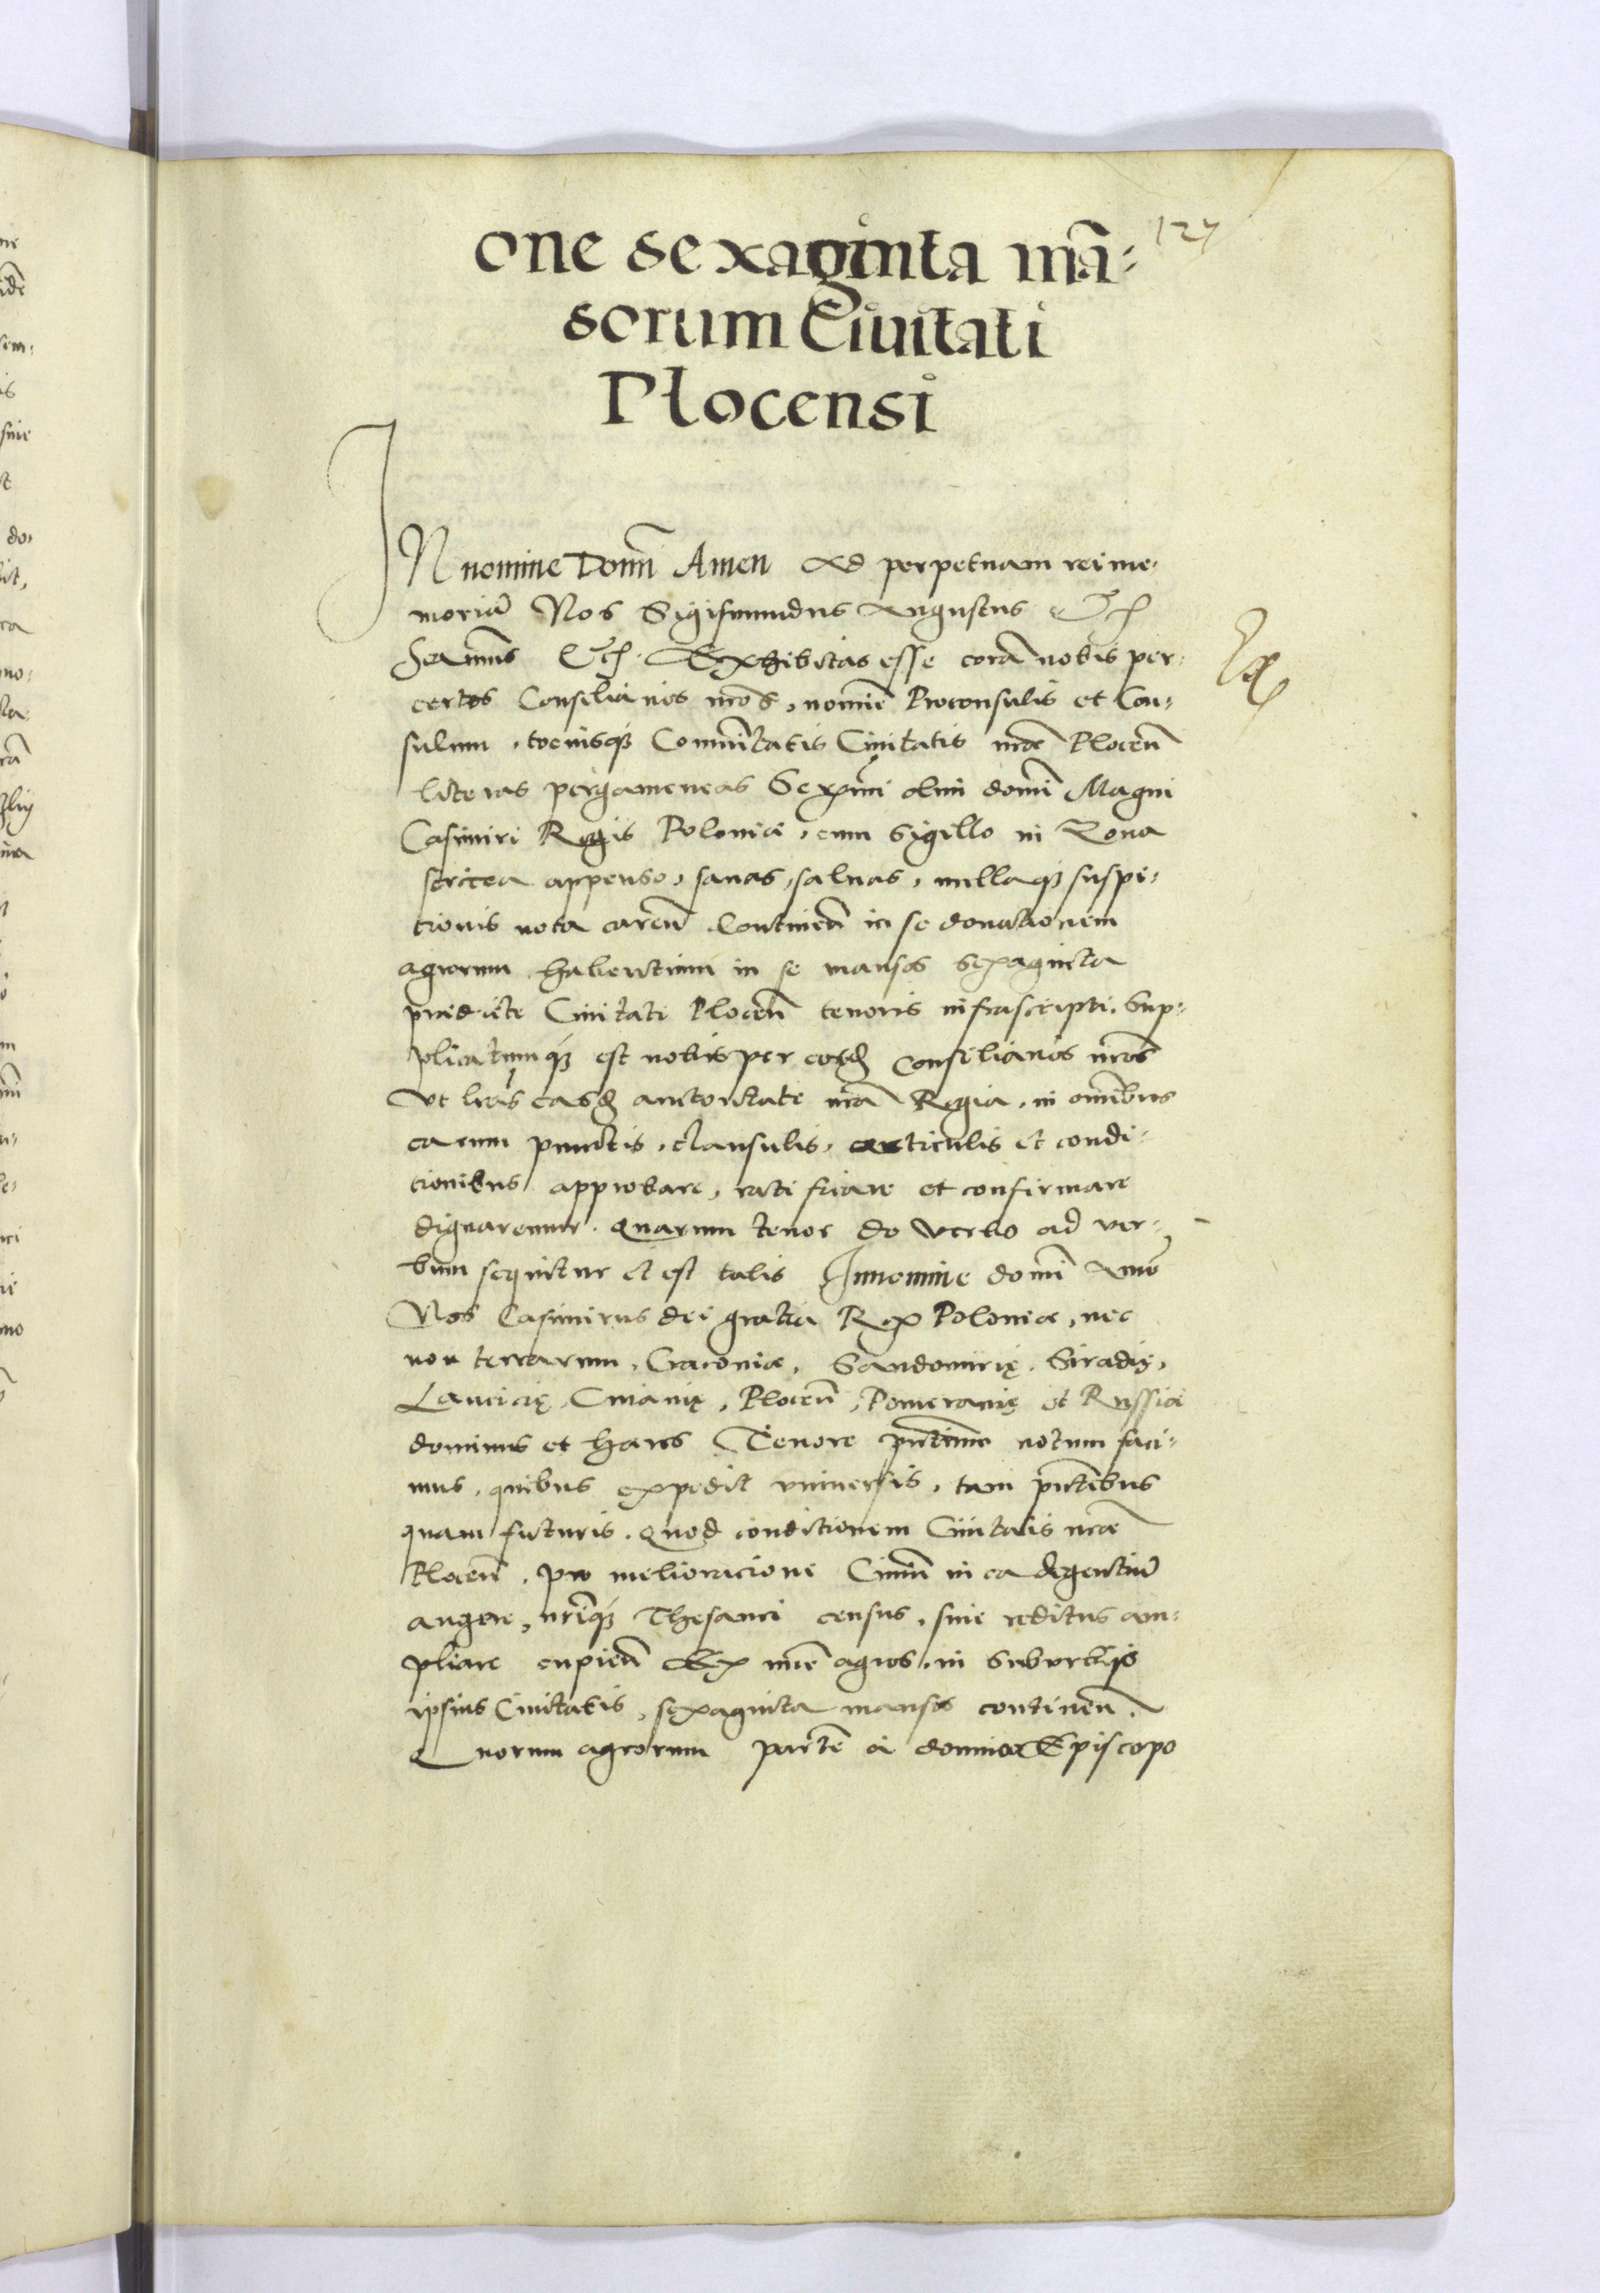 127
one sexaginta mā-
sorum Ciuitati
Plocensi
IN nomine Domī Amen Ad perpetuam rei me-
moriā Nos Sigismundus Augustus Etc
Exhibitas esse corā nobis per
certos Consiliarios nr̄os, nomīe Proconsulis et Con-
sulum, tociusq₃ Com̄unitatis Ciuitatis nr̄ae Ploceñ
literas pergameneas Sermī olim domī Magni
Casimiri Regis Poloniae, cum sigillo in Zona
sericea appenso, sanas, saluas, nullaq₃ suspi-
tionis nota careñ Contineñ in se donationem
agrorum habentium in se mansos sexaginta
predicte Ciuitati Ploceñ tenoris infrascripti. Sup-
plicatumq₃ est nobis per eosd Consiliarios nr̄os
Vt lr̄as easd auctoritate nr̄a Regia, in omībus
earum punctis, clausulis, articulis et condi-
tionibus approbare, ratificare et confirmare
dignaremur. Quarum tenor de verbo ad ver-
bum sequitur et est talis In nomine domī Amē
Nos Casimirus dei gratia Rex Poloniae, nec
non terrarum, Cracouiae, Sandomirię, Siradię,
Lancicię, Cuiauię, Ploceñ, Pomeranię et Russiae
dominus et haeres Tenore pn̄tium notum faci-
mus, quibus expedit vniuersis, tam pn̄tibus
quam futuris. Quod conditionem Ciuitatis nr̄ae
Ploceñ, pro melioracione Ciuiū in ea degentiū
augere, nr̄iq₃ Thesauri census, siue reditus am-
pliare cupieñ agros, in suburbijs
ipsius Ciuitatis, sexaginta mansos contineñ,
Quorum agrorum partē a domino Episcopo